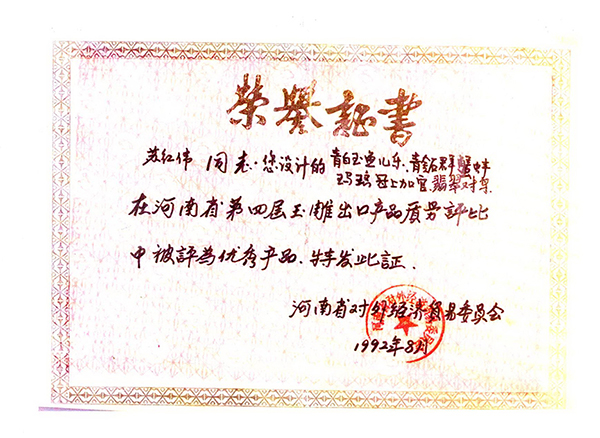 荣誉証書
苏红伟 同志:您设计的 青白玉鱼儿乐、青金石群蟹
玛瑙冠上加官、翡翠对
在河南省第四届玉雕出口产品质量評比
中被評為优秀产品、特发此証.
河南省对外经济贸易委员会
1992年8月